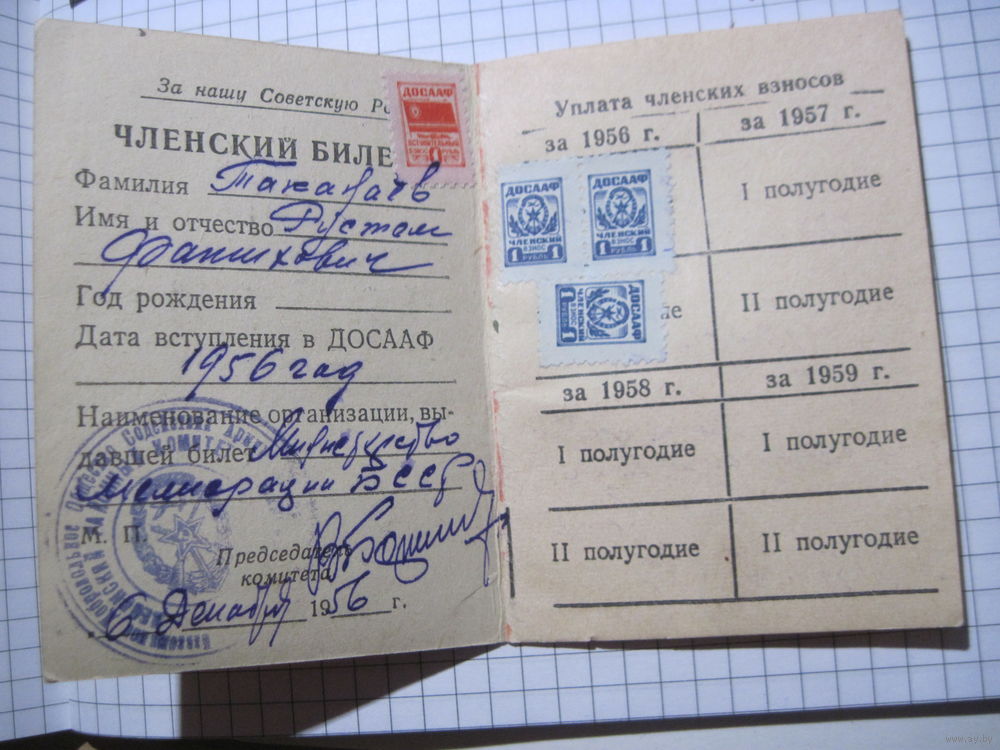 За нашу Советскую Ро
ЧЛЕНСКИЙ БИЛЕ
Фамилия
Имя и отчество Рустам
Фатихович
Год рождения
Дата вступления в ДОСААФ
1956 год
Наименование организации, вы-
давшей билет Министерство
Мелиорации БССР
М. П.
Председатель
комитета
6 Декабря 1956 г.
ДОСААФ
ВСТУПИТЕЛЬНЫЙ
ВЗНОС РУБЛЬ
Уплата членских взносов
за 1956 г.
за 1957 г.
ДОСААФ
ЧЛЕНСКИЙ
ВЗНОС
1 РУБЛЬ 1
ДОСААФ
ЧЛЕНСКИЙ
ВЗНОС
1 РУБЛЬ 1
ДОСААФ
ЧЛЕНСКИЙ
ВЗНОС
1 РУБЛЬ 1
I полугодие
ие
II полугодие
за 1958 г.
за 1959 г.
I полугодие
I полугодие
II полугодие
II полугодие
www.ay.by